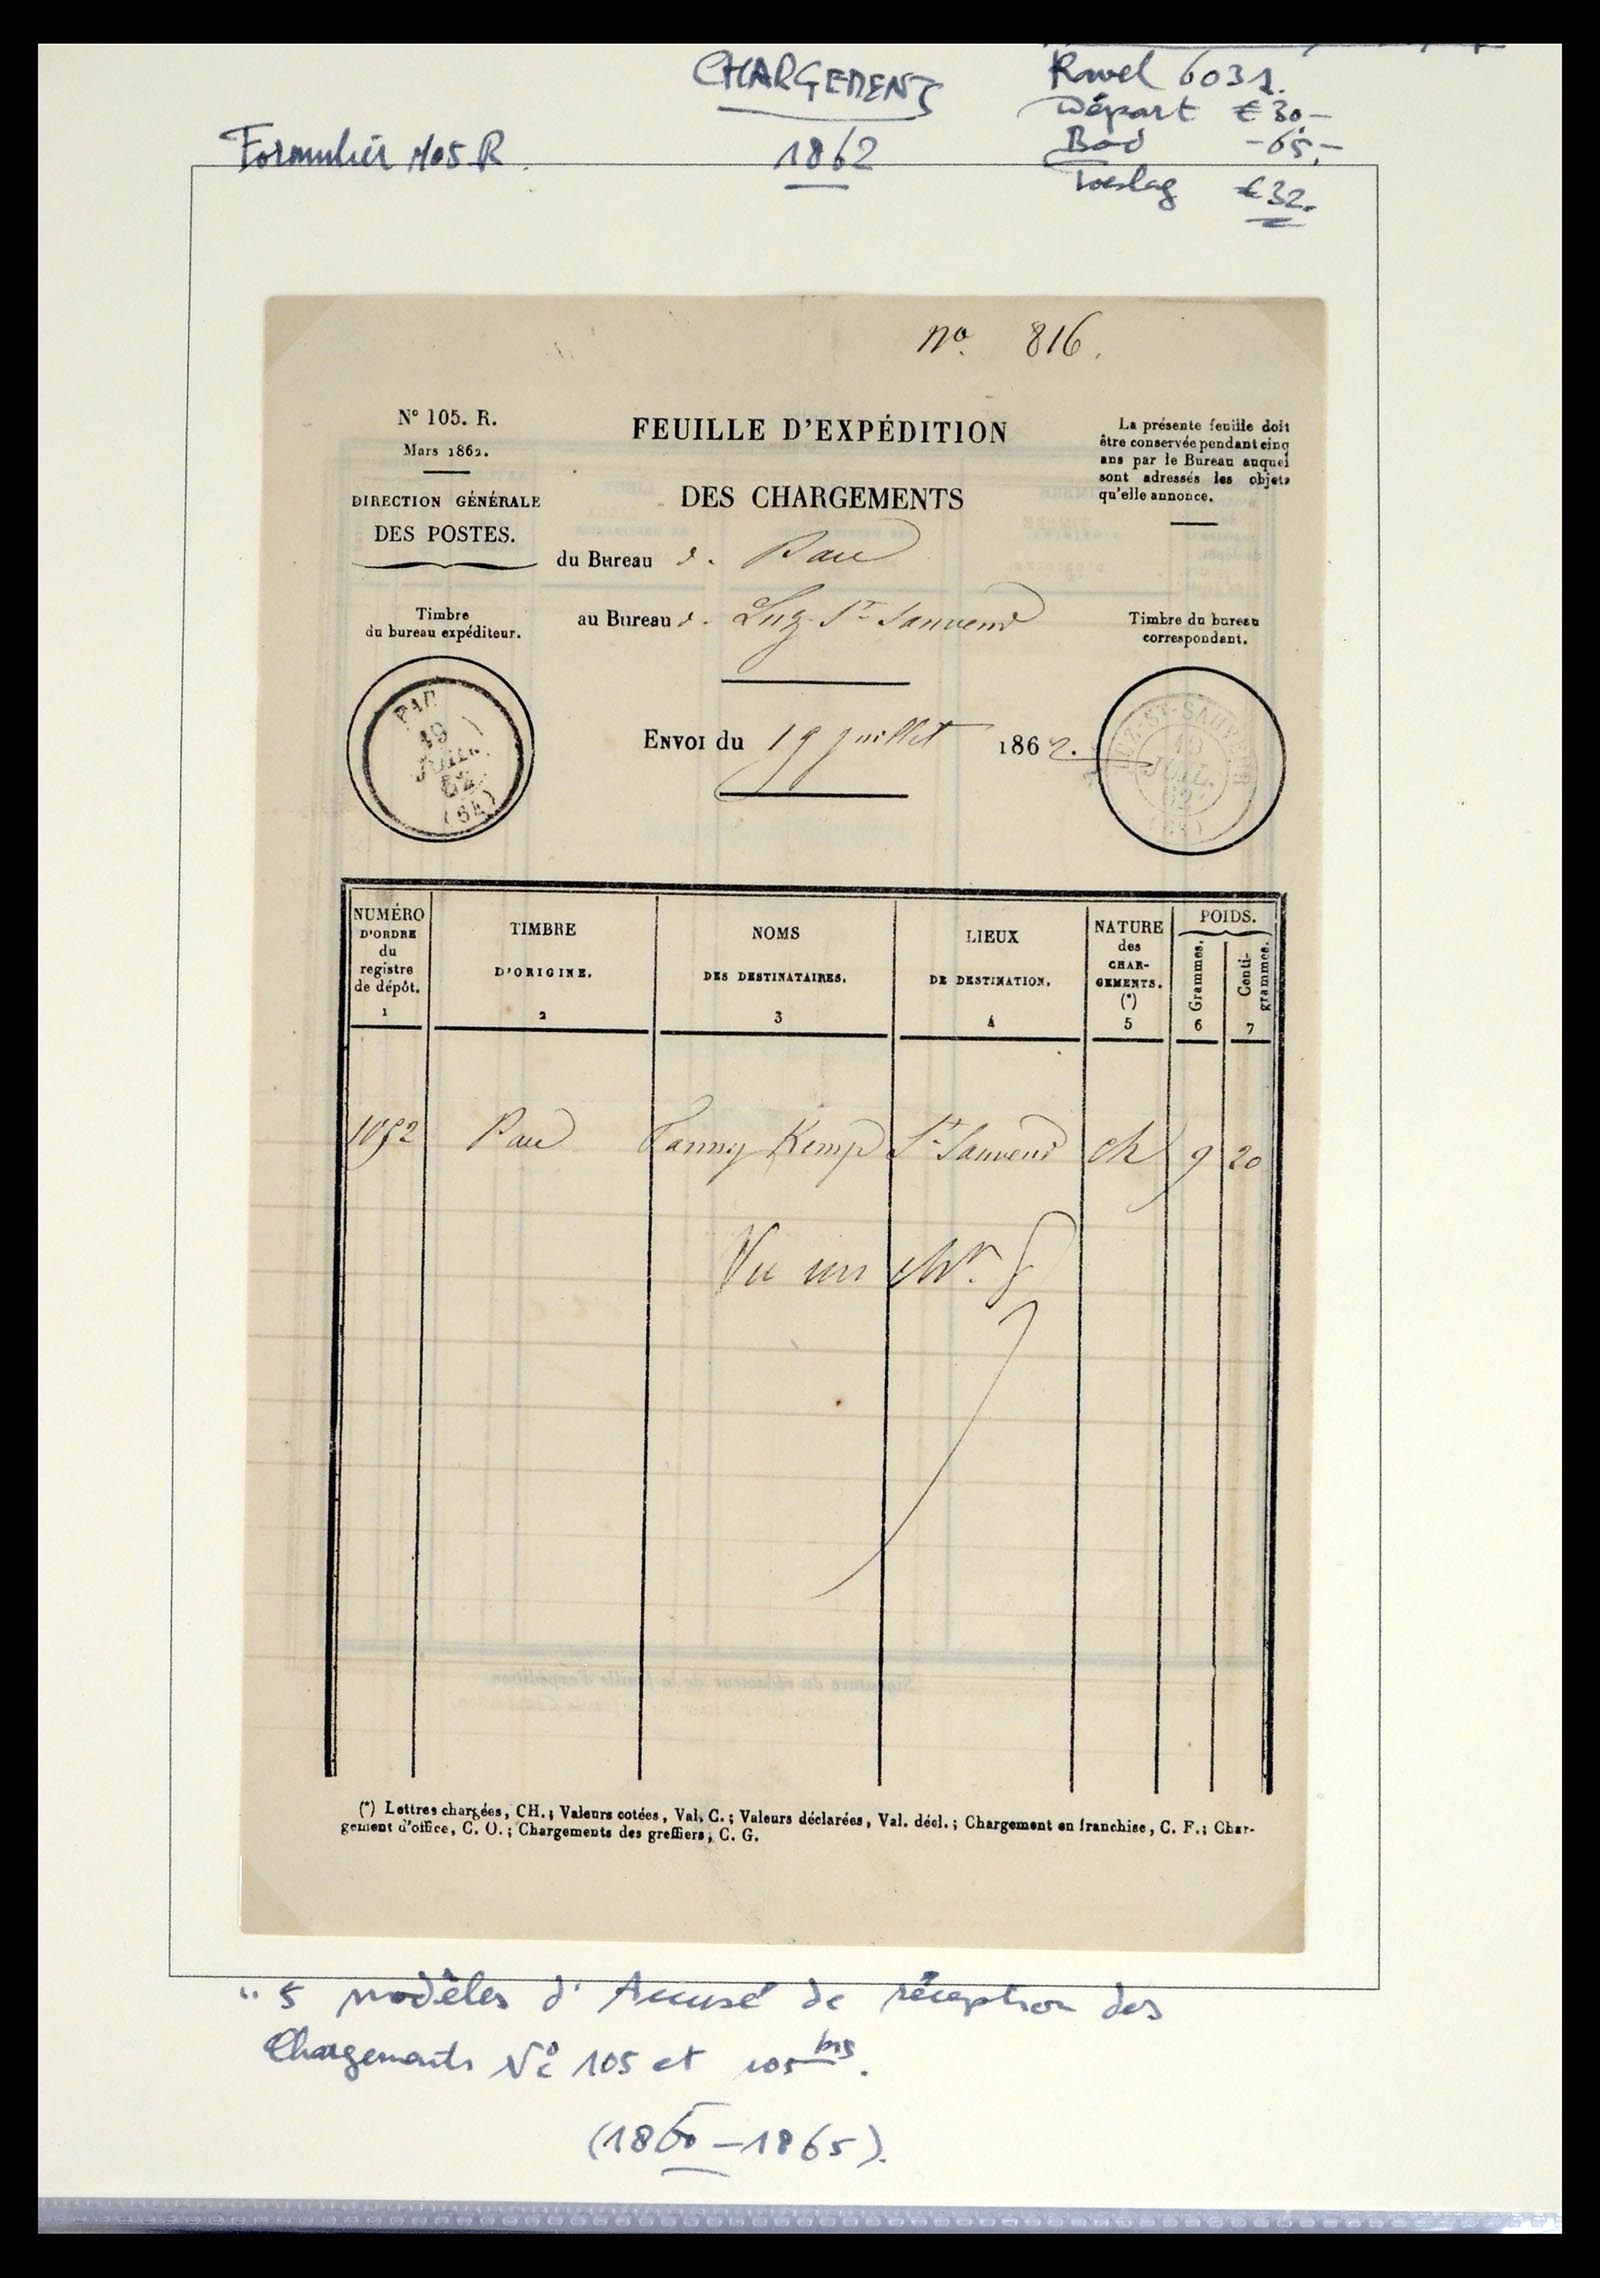 CHARGEMENTS
1862
Formulier 105 R.
Ravel 6031.
Départ € 30,-
Bod - 65,-
Toeslag € 32.
No. 816.
N° 105. R.
Mars 1862.
DIRECTION GÉNÉRALE
DES POSTES.
FEUILLE D'EXPÉDITION
DES CHARGEMENTS
du Bureau d. Pau
au Bureau d. Luz-St-Sauveur
Envoi du 19 juillet 1862.
La présente feuille doit
être conservée pendant cinq
ans par le Bureau auquel
sont adressés les objets
qu'elle annonce.
Timbre
du bureau expéditeur.
PAU
19
JUIL.
62
(64)
Timbre du bureau
correspondant.
LUZ-ST-SAUVEUR
JUIL.
62
NUMÉRO
D'ORDRE
du
registre
de dépôt.
1
TIMBRE
D'ORIGINE.
2
NOMS
DES DESTINATAIRES.
3
LIEUX
DE DESTINATION.
4
NATURE
des
CHAR-
GEMENTS.
(*)
5
POIDS.
Grammes.
6
Centi-
grammes.
7
1092 Pau Fanny Kemp St Sauveur ch 9 20
Vu un
(*) Lettres chargées, CH.; Valeurs cotées, Val. C.; Valeurs déclarées, Val. décl.; Chargement en franchise, C. F.; Char-
gement d'office, C. O.; Chargements des greffiers, C. G.
" 5 modèles d'Accusé de réception des
Chargements No 105 et 105 bis.
(1860-1865).